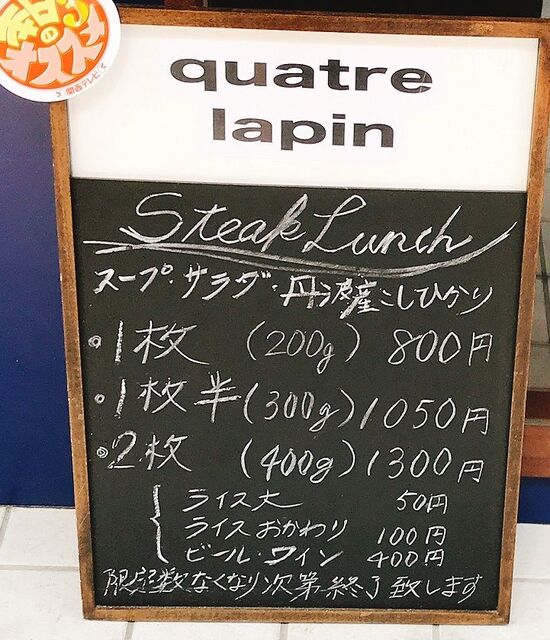 のオススメ
関西テレビ
quatre
lapin
Steak Lunch
スープ・サラダ・丹波産こしひかり
・1枚 (200g) 800円
・1枚半(300g) 1050円
・2枚 (400g) 1300円
ライス大 50円
ライスおかわり 100円
ビール・ワイン 400円
限定数なくなり次第終了致します